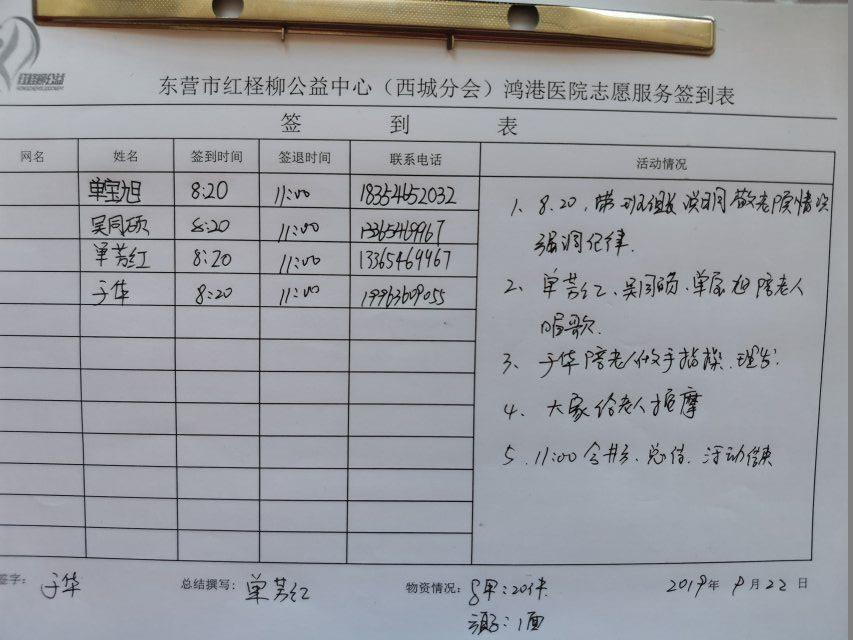 红柽柳公益
东营市红柽柳公益中心（西城分会）鸿港医院志愿服务签到表
签 到 表
网名 姓名 签到时间 签退时间 联系电话 活动情况
单宝旭 8:20 11:00 18354652032
吴同硕 8:20 11:00 13365469967
单芳红 8:20 11:00 13365469967
于华 8:20 11:00 19963609055
1、8.20，带班组长说明敬老院情况
强调纪律.
2、单芳红、吴同硕、单宝旭陪老人
唱歌.
3、于华陪老人做手指操、理发.
4、大家给老人按摩
5.11:00合影、总结、活动结束
签字： 于华 总结撰写： 单芳红 物资情况： 马甲：20件 2019年 9月22日
旗子：1面